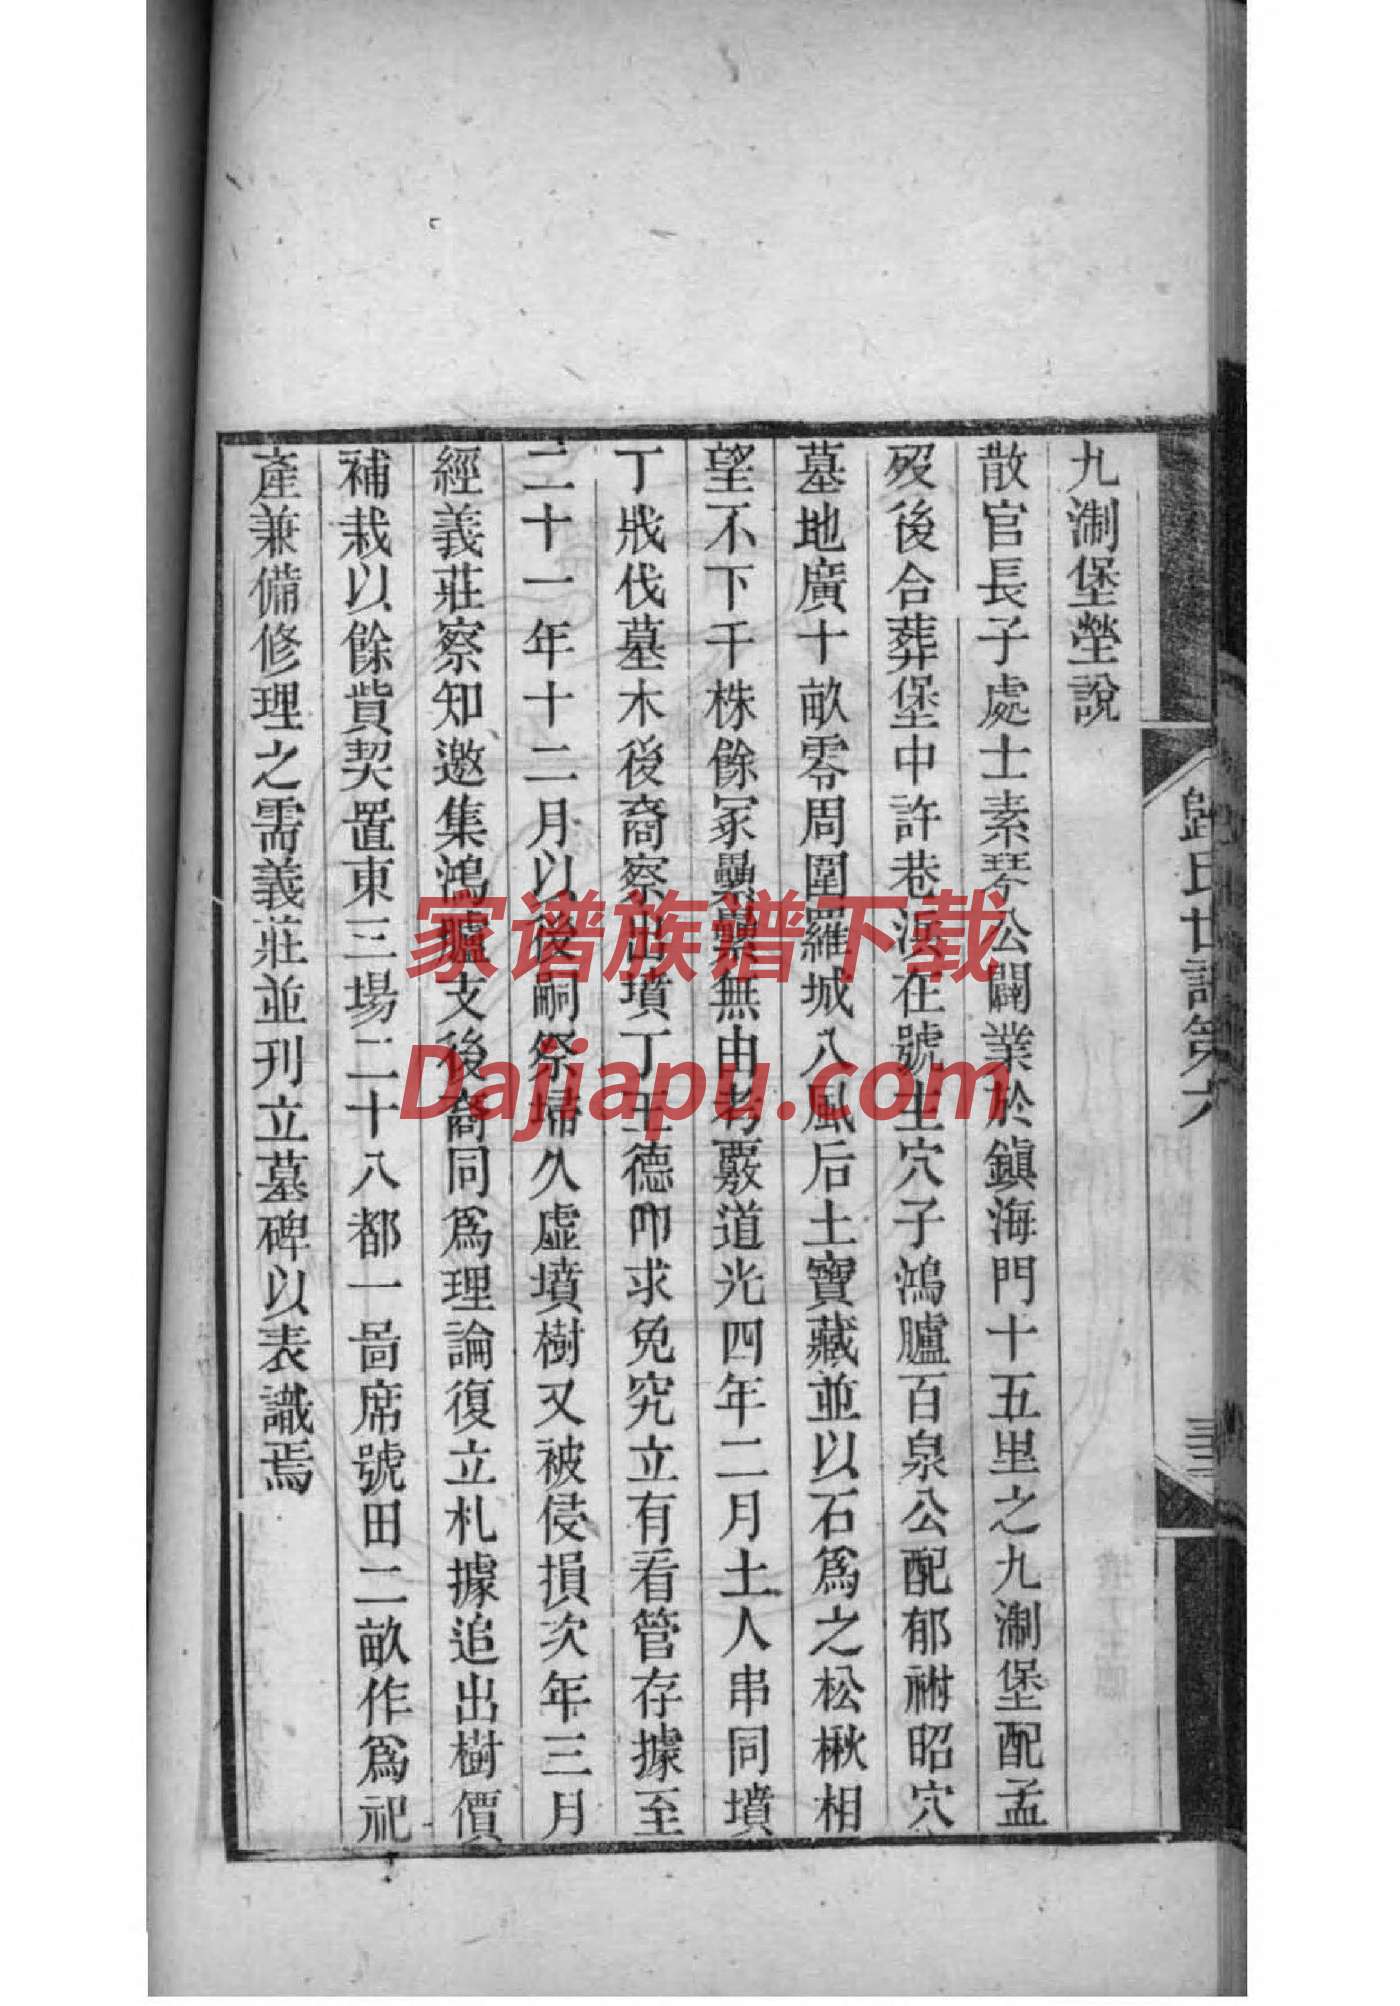 九淛堡塋說
散官長子處士素琴公闢業於鎮海門十五里之九淛堡配孟
歿後合葬堡中許巷浜在號生穴子鴻臚百泉公配郁祔昭穴
墓地廣十畝零周圍羅城八風后土寶藏並以石爲之松楸相
望不下千株餘冢纍纍無由考覈道光四年二月土人串同墳
丁戕伐墓木後裔察出墳丁王德叩求免究立有看管存據至
二十一年十二月以後嗣祭掃久虛墳樹又被侵損次年三月
經義莊察知邀集鴻臚支後裔同爲理論復立札據追出樹價
補栽以餘貲契置東三場二十八都一啚席號田二畝作爲祀
產兼備修理之需義莊並刊立墓碑以表識焉
歸氏世譜第六
家谱族谱下载
Dajiapu.com